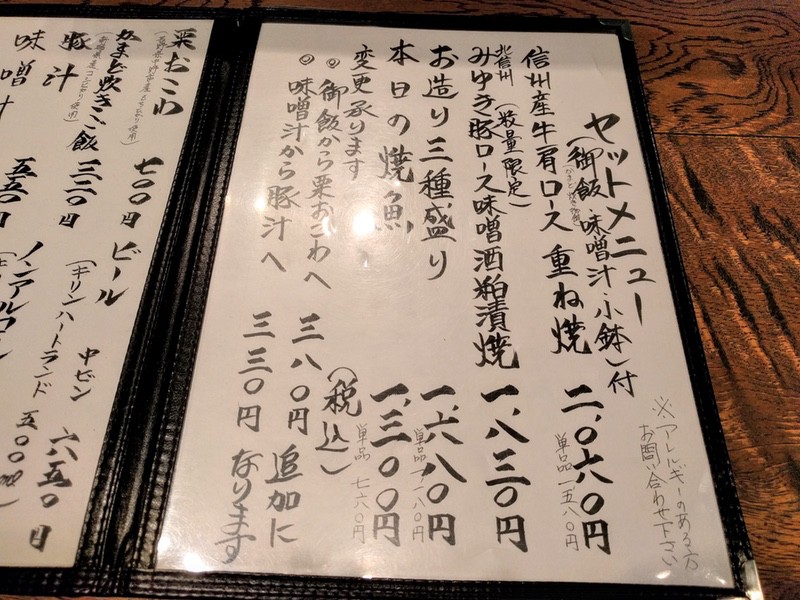 セットメニュー
(御飯 味噌汁・小鉢)付
※アレルギーのある方
お問い合わせ下さい
信州産牛肩ロース 重ね焼 二、〇六〇円
単品 一、五八〇円
北信州
みゆき豚ロース味噌酒粕漬焼 一、八三〇円
(数量限定)
お造り三種盛り 一、六八〇円
本日の焼魚 一、三〇〇円
単品 七六〇円
(税込)
変更承ります
◎御飯から栗おこわへ 三八〇円 追加に
◎味噌汁から豚汁へ 三三〇円 なります
栗おこわ 七〇〇円
かまど炊きご飯 三二〇円
豚汁 五五〇円
味噌汁
ビール
(キリンハートランド 中ビン 六八五〇円
ノンアルコール 五〇〇円